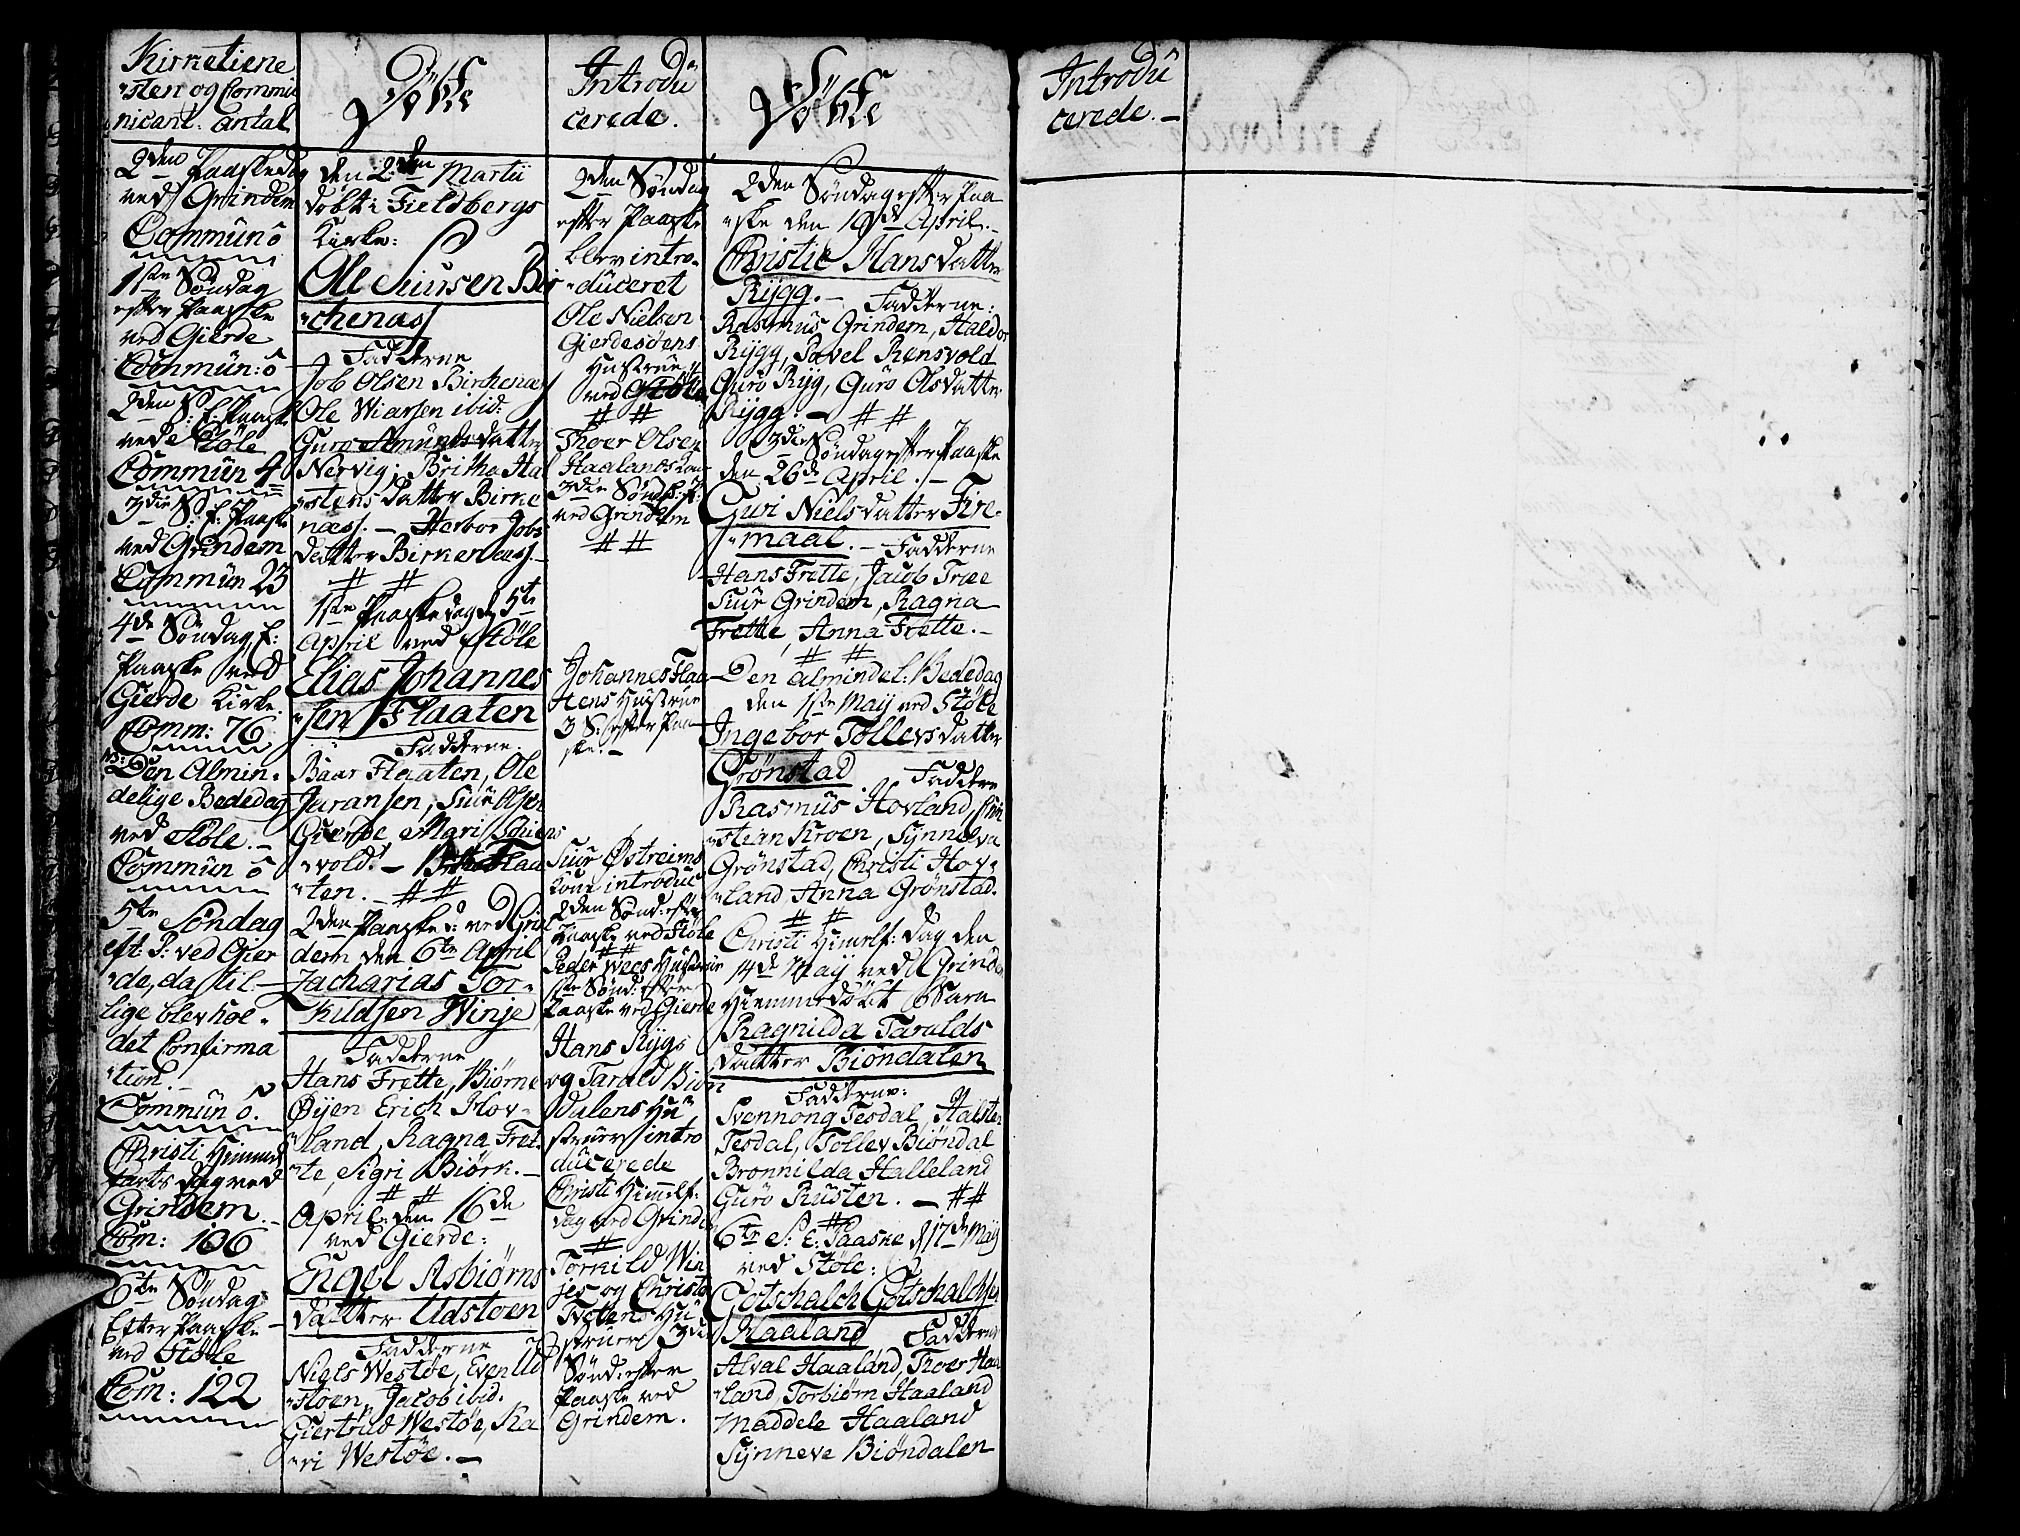 Kirketiene
"sten og Commu
nicant: Antal
2den Paaskedag
ved Grindem
Commun 0
1ste Søndag
efter Paaske
ved Gierde
Commun: 0
2den S: E: Paaske
ved Støle
Commun 4
3die S: E: Paaske
ved Grindem
Commun 23
4de Søndag E:
Paaske ved
Gierde Kirke.
Comm: 76
Den Almin-
delige Bededag
ved Støle.
Commun 0
5te Søndag
eft: P: ved Gier
"de, da til-
lige blev hol-
det Confirma
"tion.
Commun 0.
Christi Himmel
farts dag ved
Grindem.
Com: 106
6te Søndag
Efter Paaske
ved Støle
Com: 122
Døbte
den 2den Martii
døbt i Fieldbergs
Kirke:
Ole Siursen Bir
"chenæs
Fadderne
Job Olsen Birchenæs
Ole Wiarsen ibid:
Guro Amundsdatter
Nervig; Britha Hal
"stens datter Birke
næss. - Herbor Jobs
datter Birkenæss.
1ste Paaskedag d. 5te
April ved Støle
Elias Johannes
"sen Flaaten
Fadderne:
Baar Flaaten, Ole
Juransen, Siur Olsen
Gierde Mari Schiens
"vold. - Britha Flaa
"ten. - # #
2den Paasked: ved Grin
dem den 6te April
Zacharias Tor-
"kildsen Winje
Fadderne
Hans Frette, Biørne
Øyen Erich Hov-
"land, Ragna Fret-
"te, Sigri Biørk.
# #
April den 16de
ved Gierde:
Engel Asbiørns
datter Udstøen
Fadderne
Niels Westøe, Even Ud
"støen, Jacob ibid.
Giertrud Westøe, Ka
"ri Westøe. -
Introdu
cerede.
2den Søndag
efter Paaske
blev intro-
"duceret
Ole Nielsen
Gierdesøens
Hustrue
ved Støle
# #
Thoer Olsen
Haalands Kone
3die Sønd: E: P:
ved Grindem
# #
Johannes Flaa
tens Hustrue
3 S: efter Paa
ske. -
Siur Østreims
Kone introduc
2den Sønd: efter
Paaske ved Støle
# #
Peder Wees Hustrue
1ste Sønd: efter
Paaske ved Gierde
Hans Rygs
og Tarald Biøn
dalens Hu
struer intro
ducerede
Christi Himmelf:
dag ved Grindem
#
Torkild Win
jes og Christo
Tvetens Hu
struer 3die
Sønd: efter
Paaske ved
Grindem.
Døbte
2den Søndag efter Paa
"ske den 19de April.
Christie Hansdatter
Rygg. - Fadderne:
Rasmus Grindem, Haldor
Rygg, Pavel Rensvold
Guro Ryg, Guro Olsdatter
Rygg. - # #
3die Søndag efter Paaske
den 26de April. -
Guri Nielsdatter Fire-
"maal. - Fadderne
Hans Frette, Jacob Træe
Siur Grindem, Ragna
Frette, Anna Frette. -
# #
Den almindel: Bededag
den 1ste May ved Støle
Ingebor Tollevsdatter
Grønstad Fadderne
Rasmus Hovland, Chri
"stian Kroen, Synneva
Grønstad, Christi Hov-
"land Anna Grønstad.
# #
Christi Himelf: dag den
14de May ved Grindem
Hiemmedøbt Barn
Ragnilda Taralds
datter Biøndalen
Fadderne:
Svennong Tesdal, Halsten
Tesdal, Tollev Biøndal
Bronnilda Halleland
Guro Rusten. - # #
6te S: E: Paaske d. 17de May
ved Støle:
Gotschalch Gotschalchsen
Haaland Fadderne
Alval Haaland, Thoer Haa
"land Torbiørn Haaland
Maddele Haaland
Synneve Biøndalen
Introdu
cerede. -